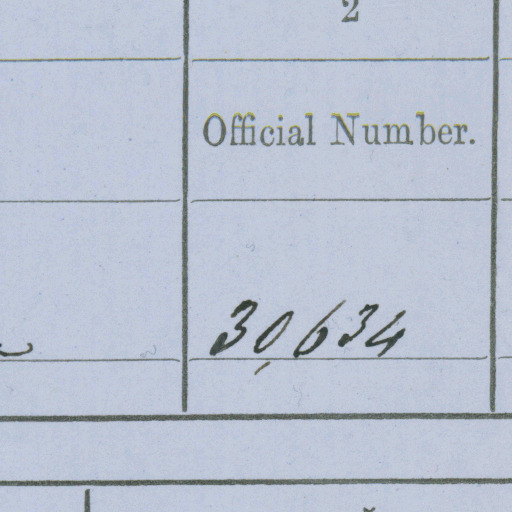 2
Official Number.
30,634